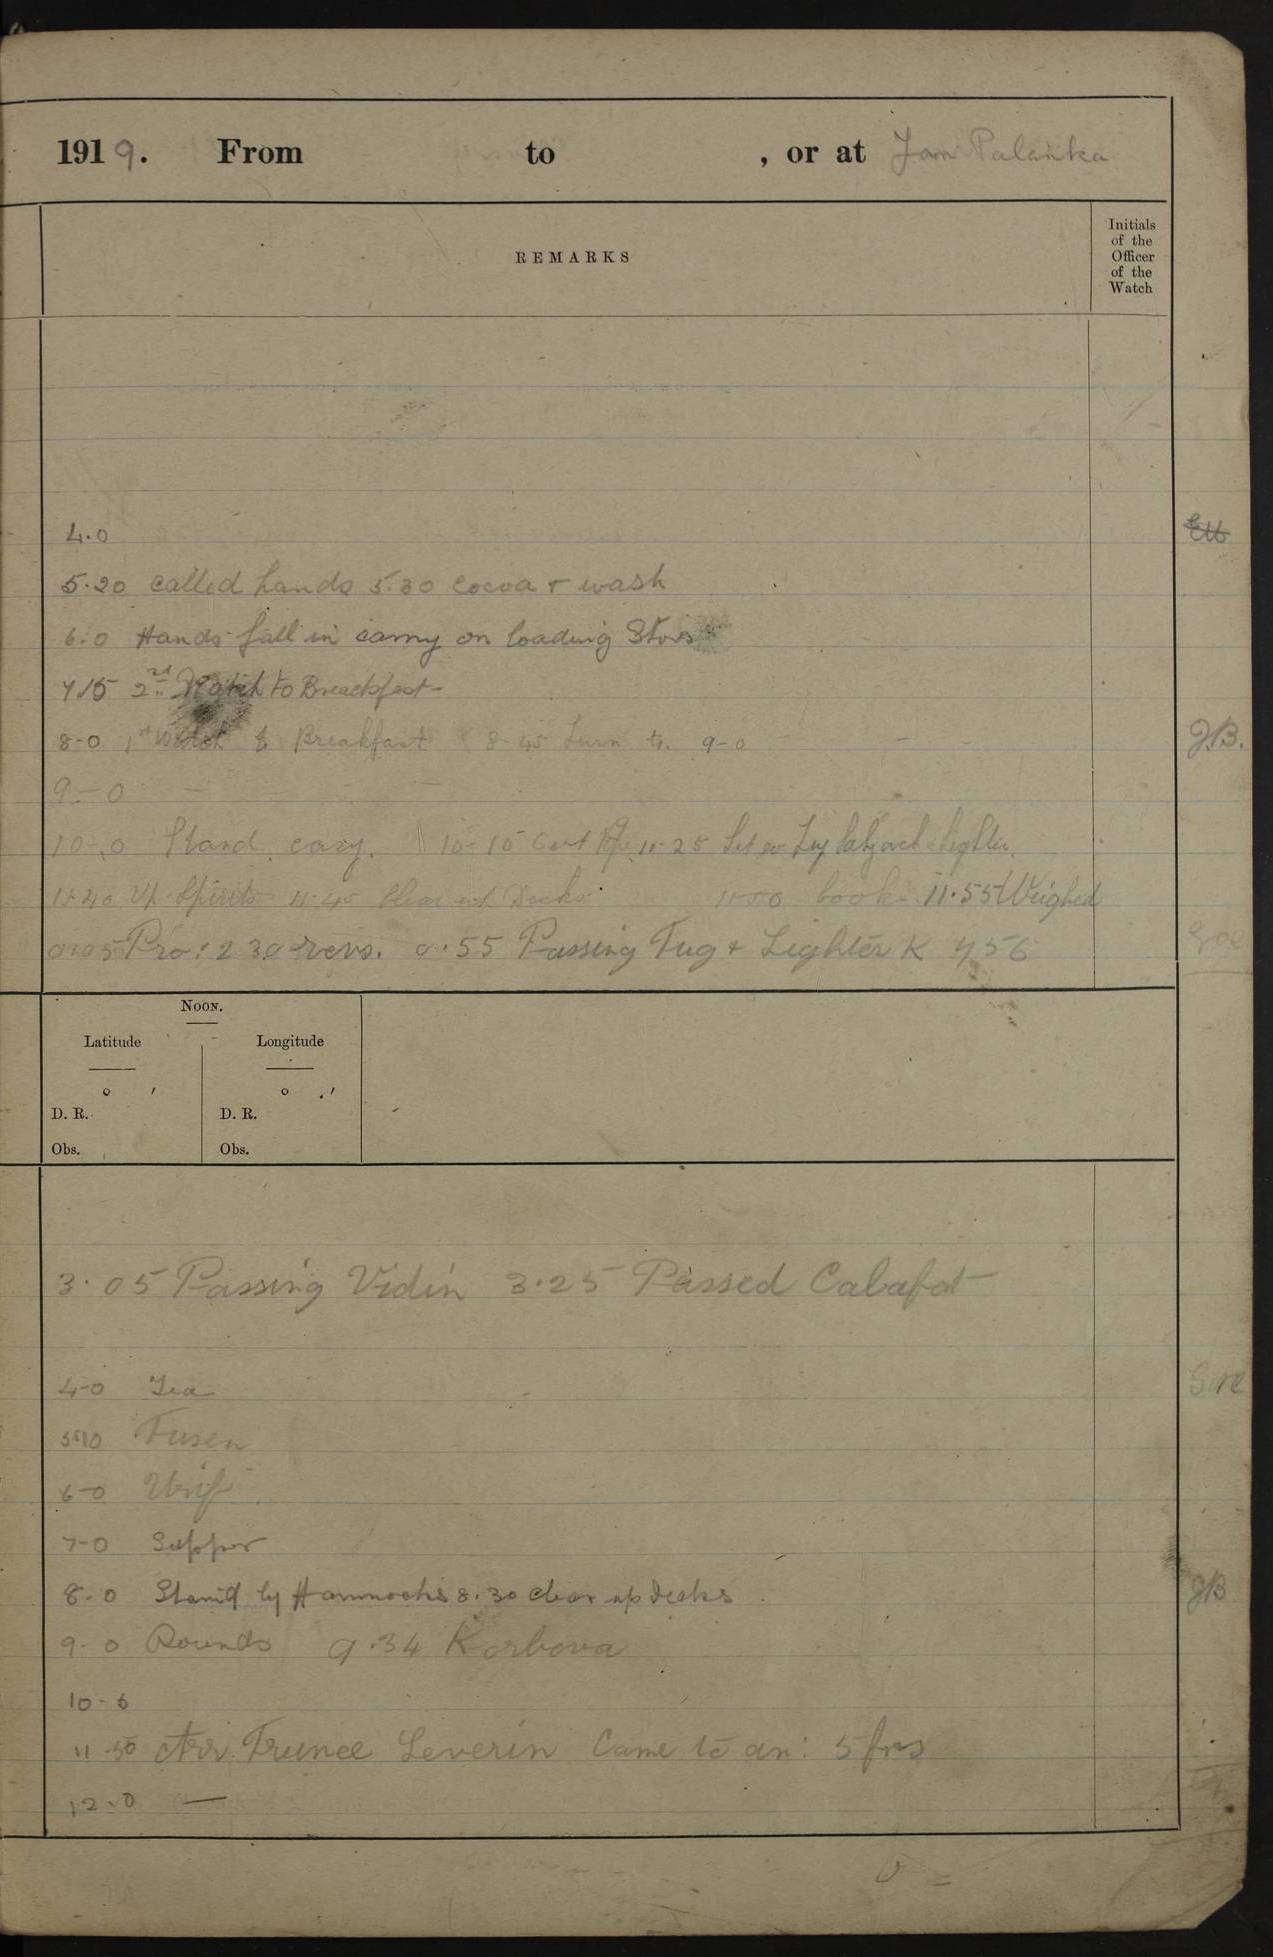 1919. From to , or at Lom Palanka
REMARKS
Initials
of the
Officer
of the
Watch
4.0
5.20 called hands 5.30 cocoa + wash
6.0 Hands fall in carry on loading Stores
7.15 2nd Watch to Breackfast
8-0 1st Watch to Breakfast 8 45 Turn to. 9-0
J.B.
9-0
10-0 Stand easy. 10-15 11-25 Tug Lighter.
11.40 Up Spirits 11.45 Clear up Decks 11.50 cooks 11.55 Weighed
0.05 Pro: 230 revs. 0.55 Passing Tug + Lighter K 756
NOON.
Latitude Longitude
° ′ ° ′
D. R. D. R.
Obs. Obs.
3.05 Passing Vidin 3.25 Passed Calafat
4-0 Tea
5.10
6-0
7-0 Supper
8.0 Stand by Hammocks 8.30 clear up decks
JB
9-0 Rounds 9.34 Korbova
10-0
11-50 Arr. Severin Came to an: 5 fms
12.0 —